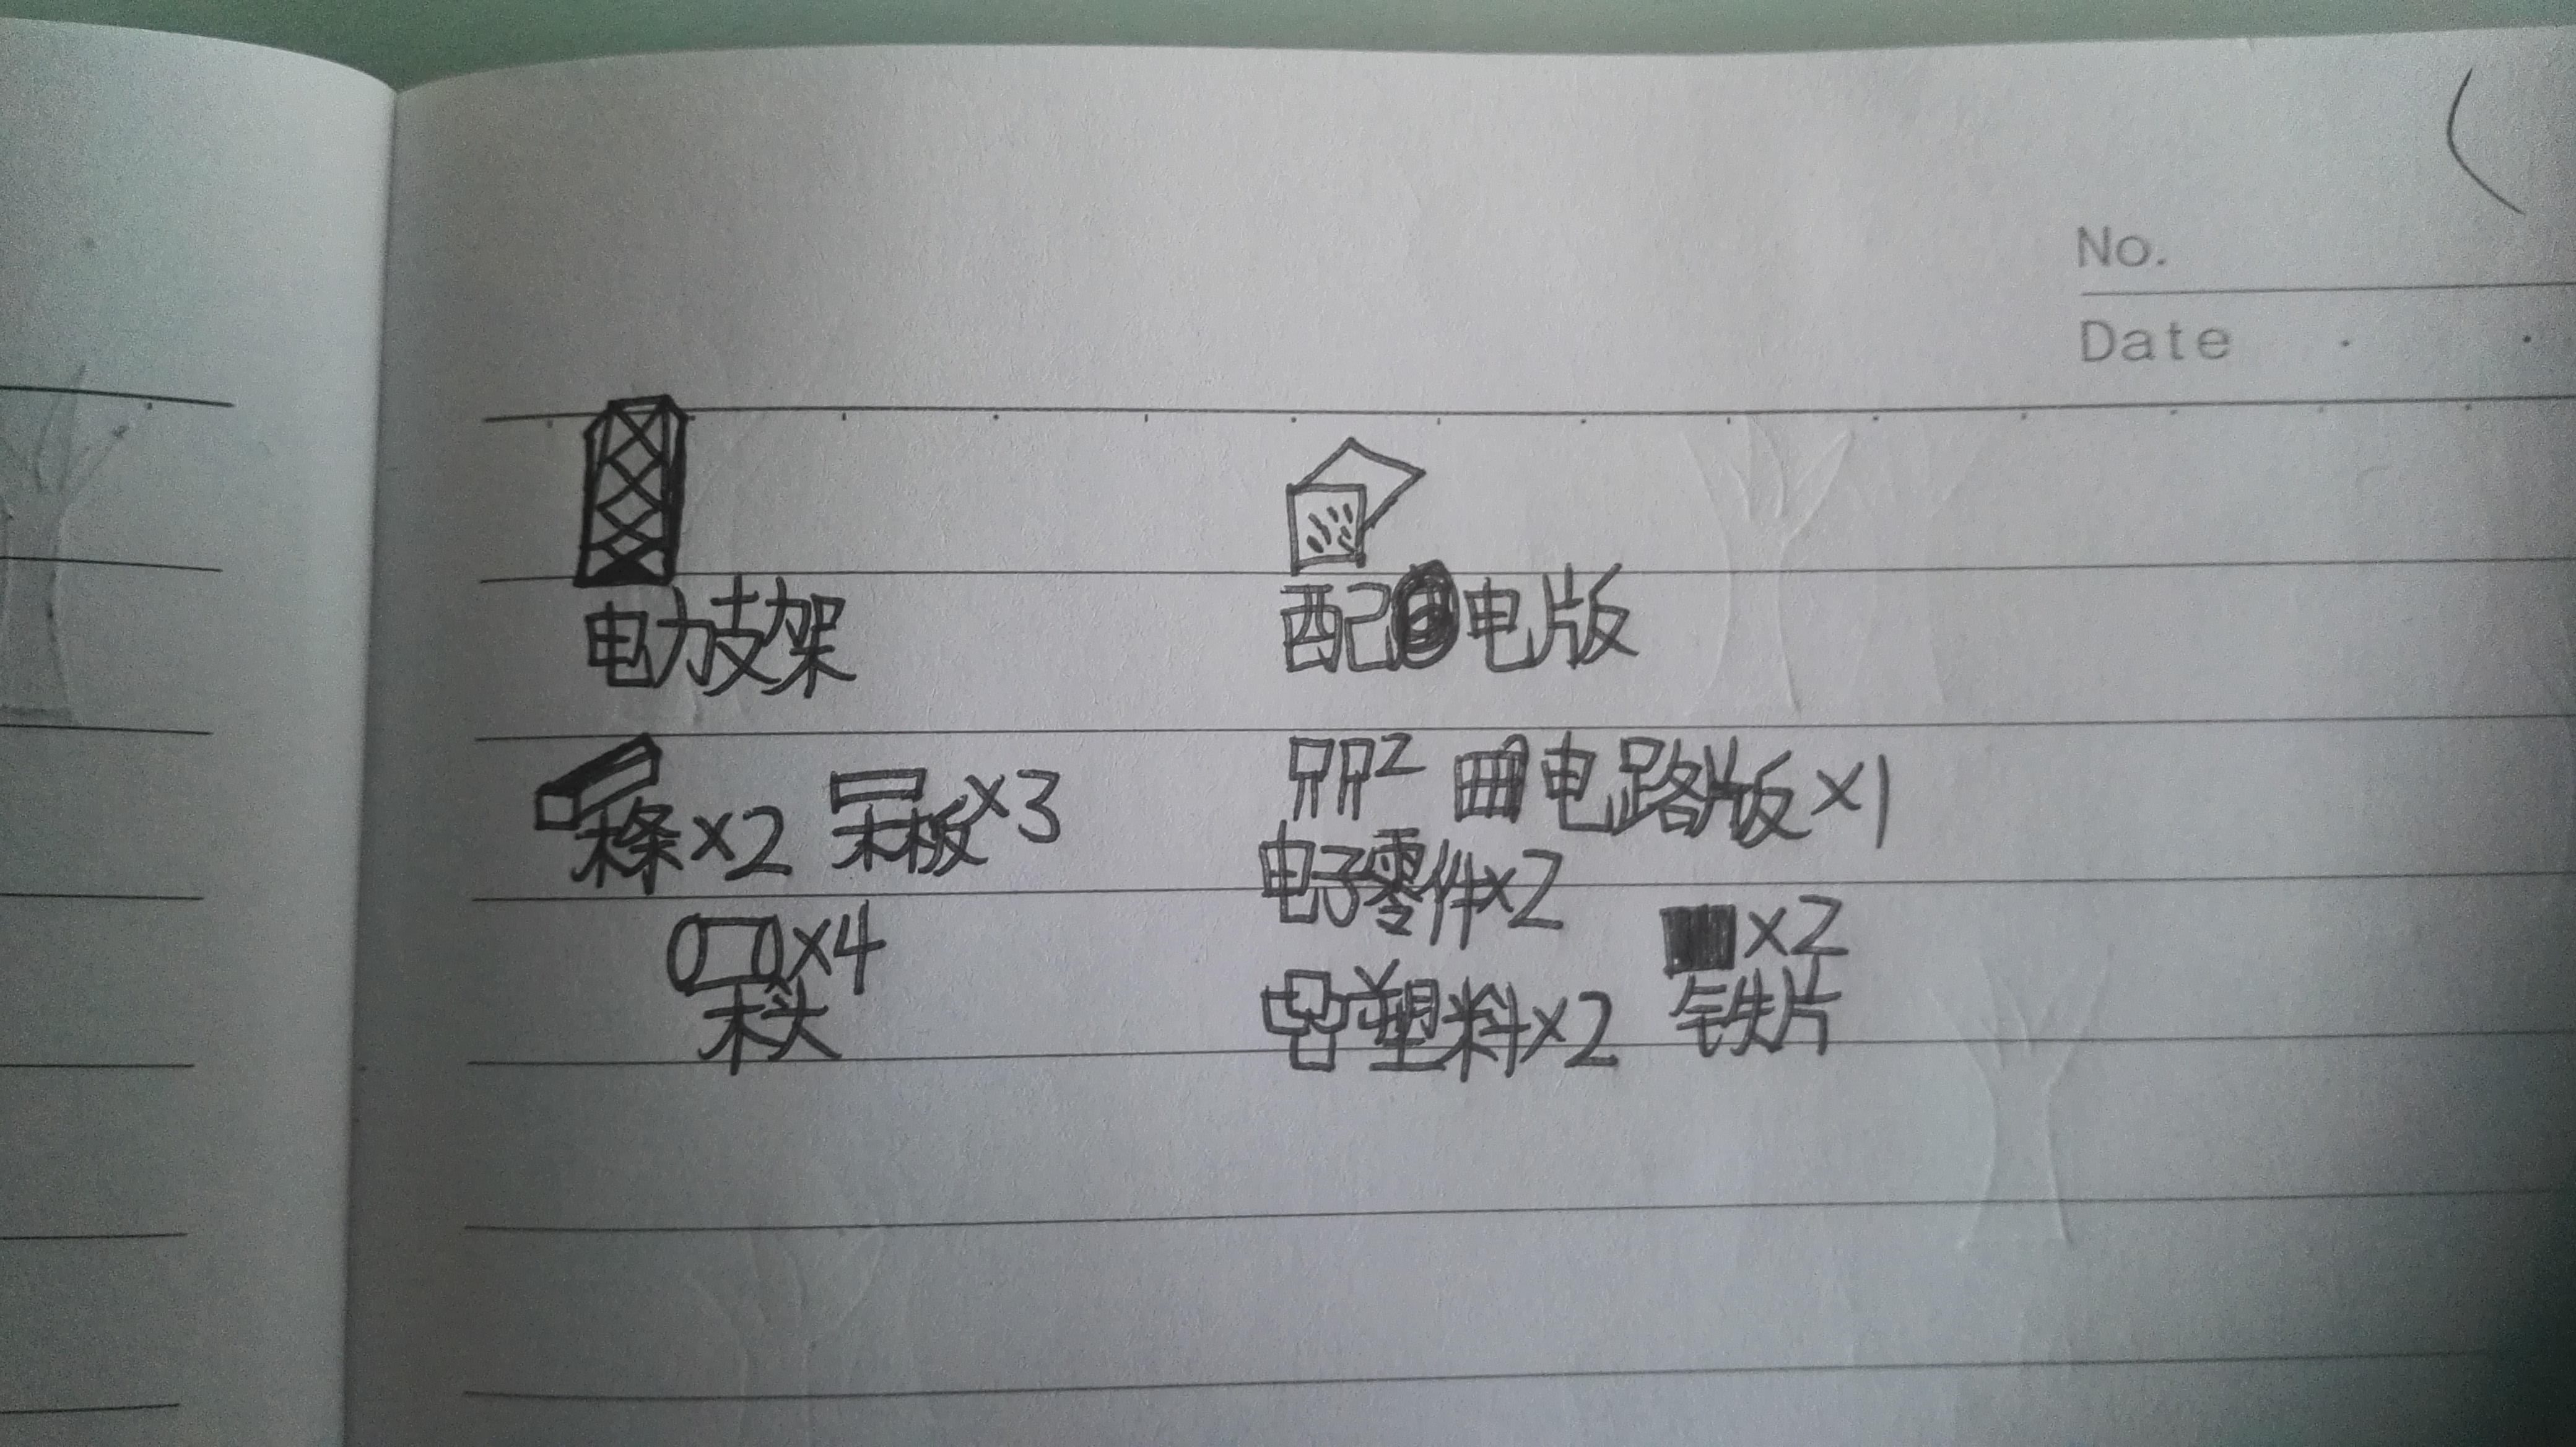 No.
Date
电力支架
配电版
木条×2 木板×3
2 电路版×1
电子零件×2
×4
木头
×2
塑料×2 铁片